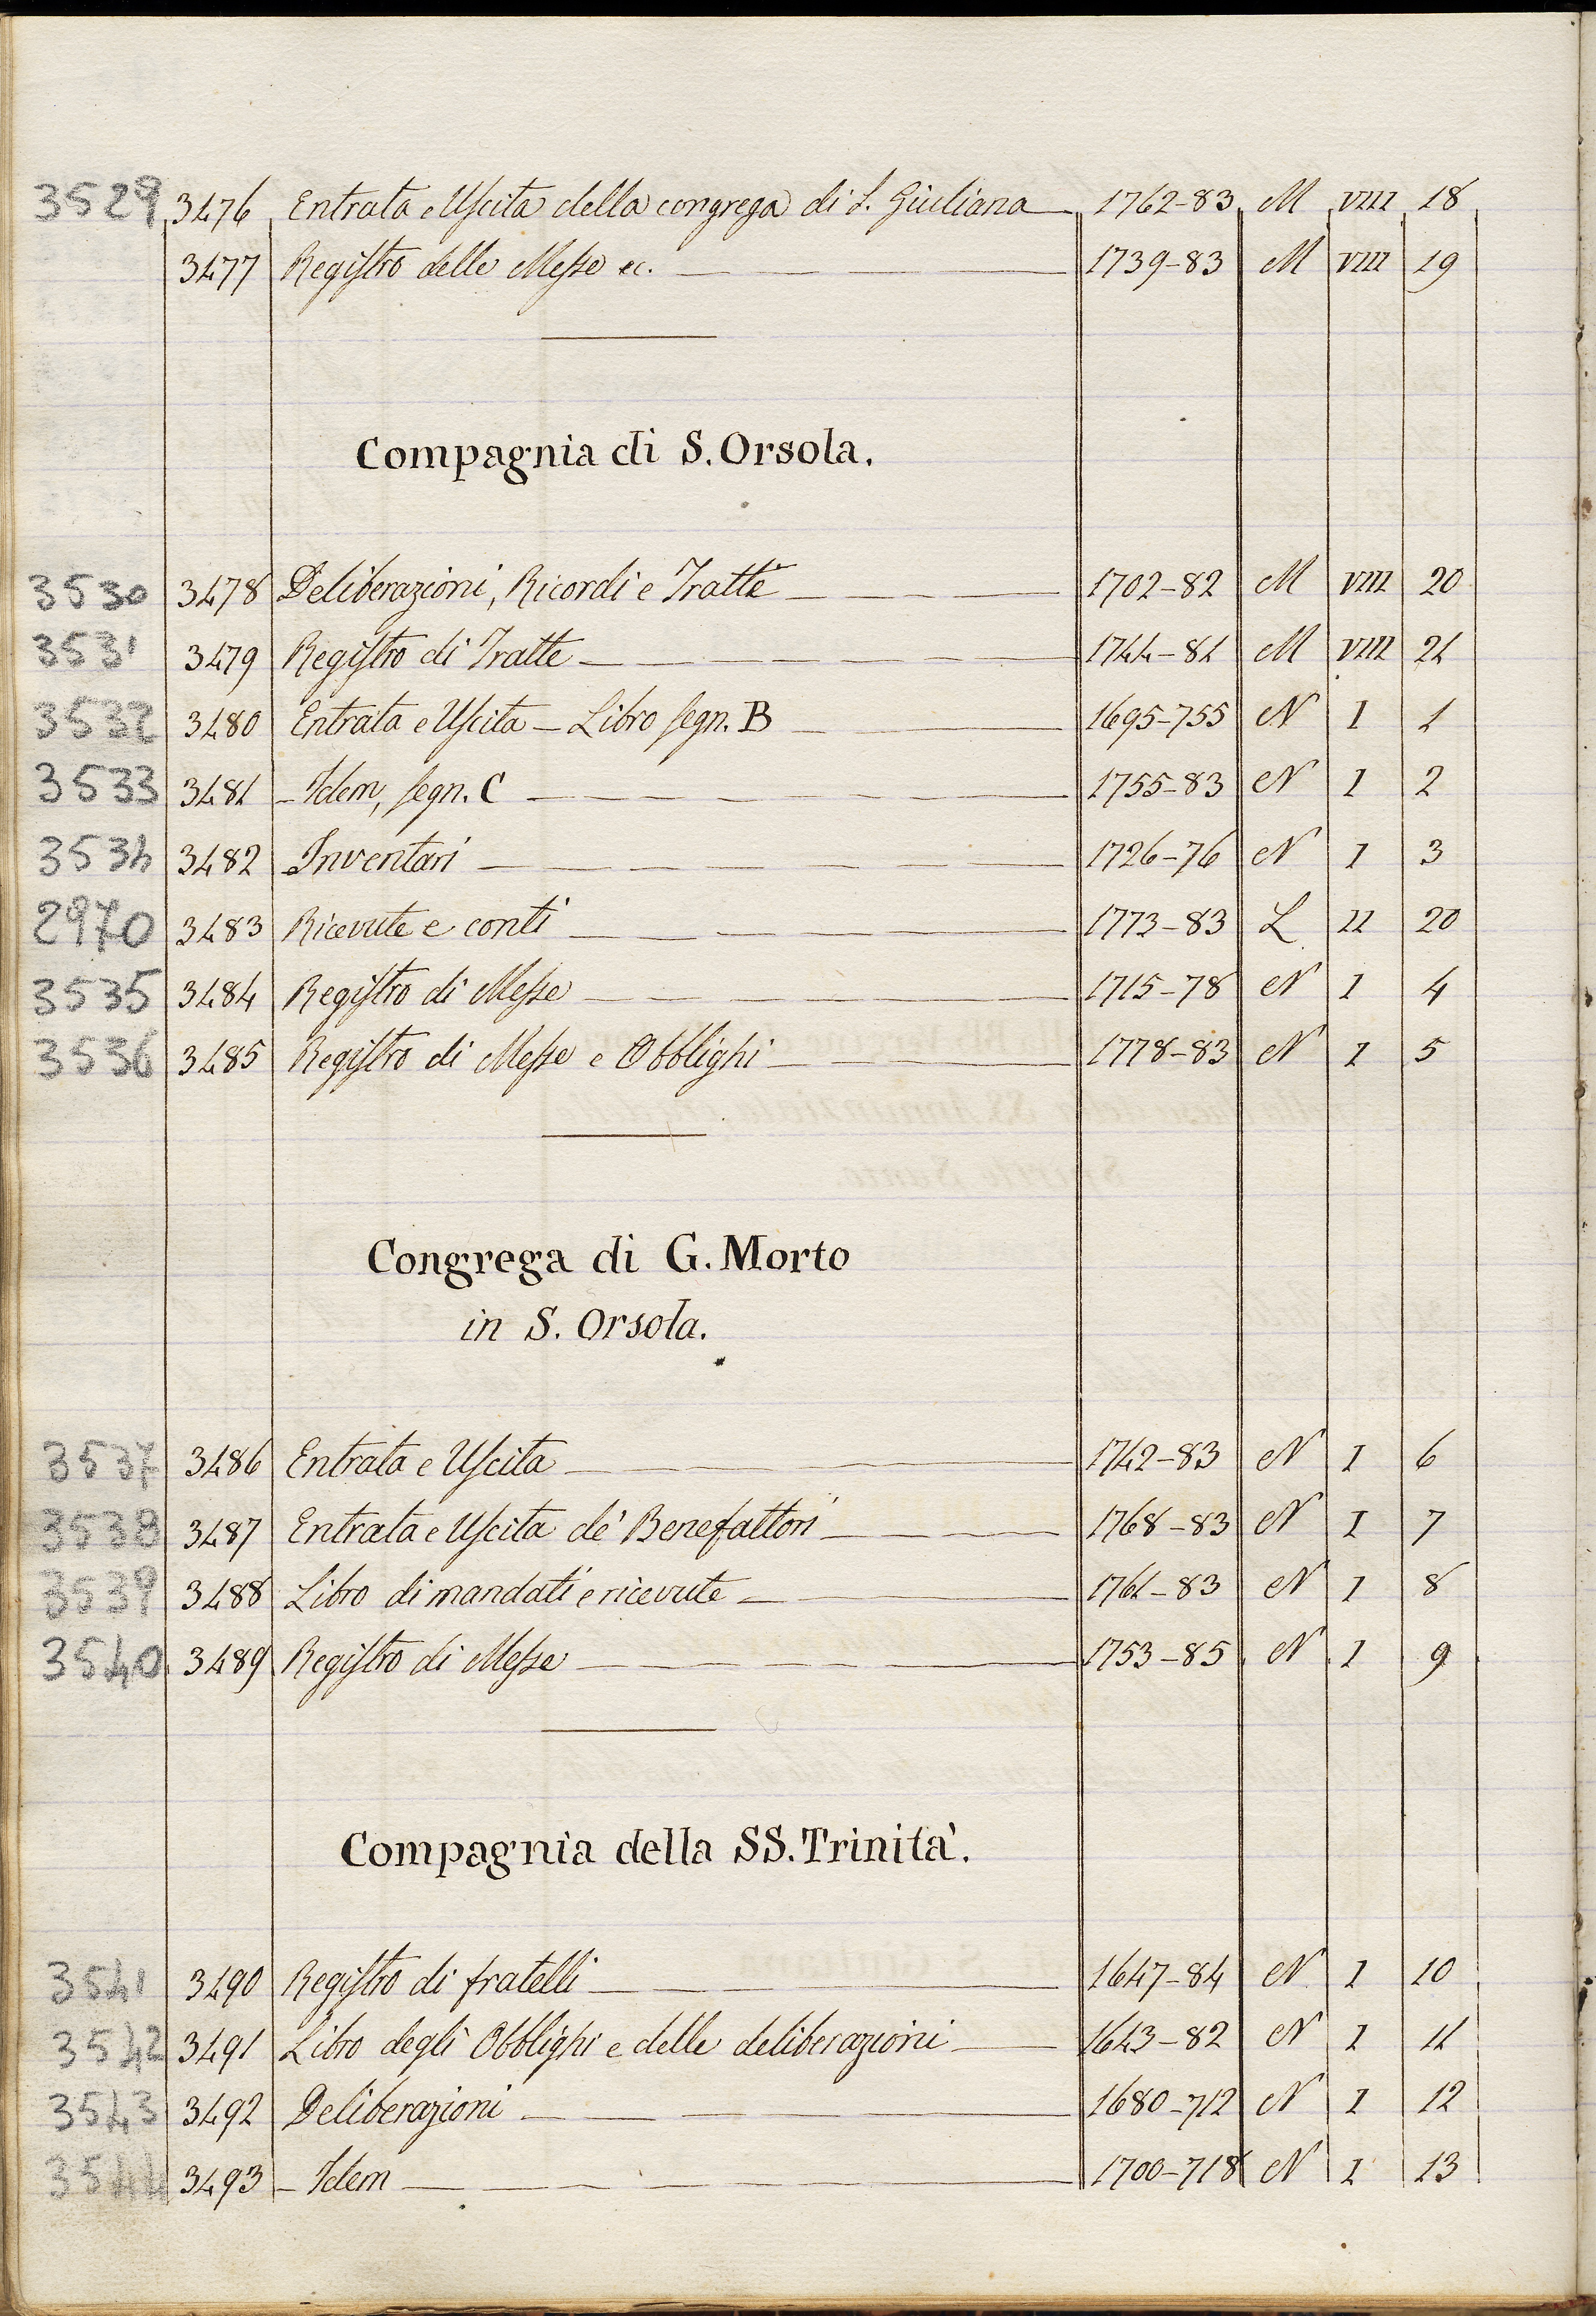 3529 3476 Entrata e Uscita della congrega di S. Giuliana 1762-83 M VIII 18
3477 Registro delle Messe ec. 1739-83 M VIII 19
Compagnia di S. Orsola.
3530 3478 Deliberazioni, Ricordi e Tratte 1702-82 M VIII 20
3531 3479 Registro di Tratte 1744-81 M VIII 21
3532 3480 Entrata e Uscita - Libro segn. B 1695-755 N I 1
3533 3481 - Idem, segn. C 1755-83 N I 2
3534 3482 Inventari 1726-76 N I 3
2970 3483 Ricevute e conti 1773-83 L II 20
3535 3484 Registro di Messe 1715-78 N I 4
3536 3485 Registro di Messe e Obblighi 1778-83 N I 5
Congrega di G. Morto
in S. Orsola.
3537 3486 Entrata e Uscita 1742-83 N I 6
3538 3487 Entrata e Uscita de' Benefattori 1768-83 N I 7
3539 3488 Libro di mandati e ricevute 1761-83 N I 8
3540 3489 Registro di Messe 1753-85 N I 9
Compagnia della SS. Trinità.
3541 3490 Registro di fratelli 1647-84 N I 10
3542 3491 Libro degli Obblighi e delle deliberazioni 1643-82 N I 11
3543 3492 Deliberazioni 1680-712 N I 12
3544 3493 - Idem 1700-718 N I 13